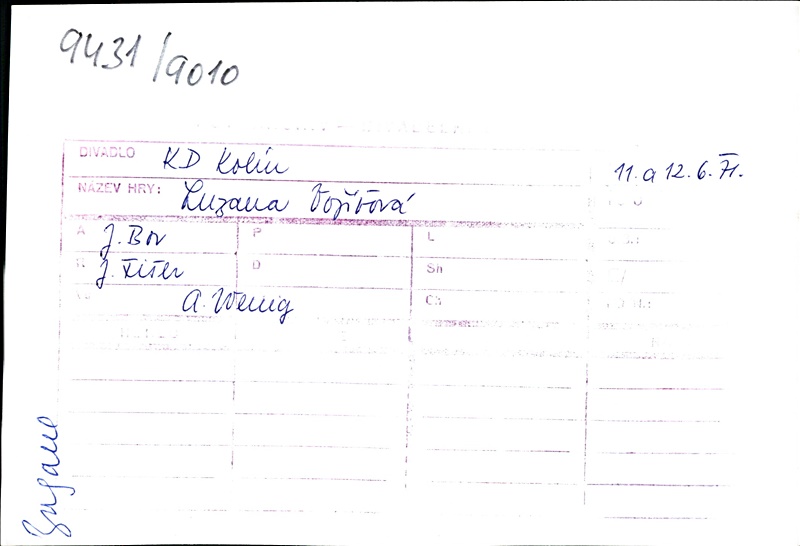 9431/9010
DIVADLO KD Kolín
11. a 12. 6. 71.
NÁZEV HRY: Zuzana Vojířová
A J. Bor P L
R J. Fišer D Sh
A. Wenig Ch